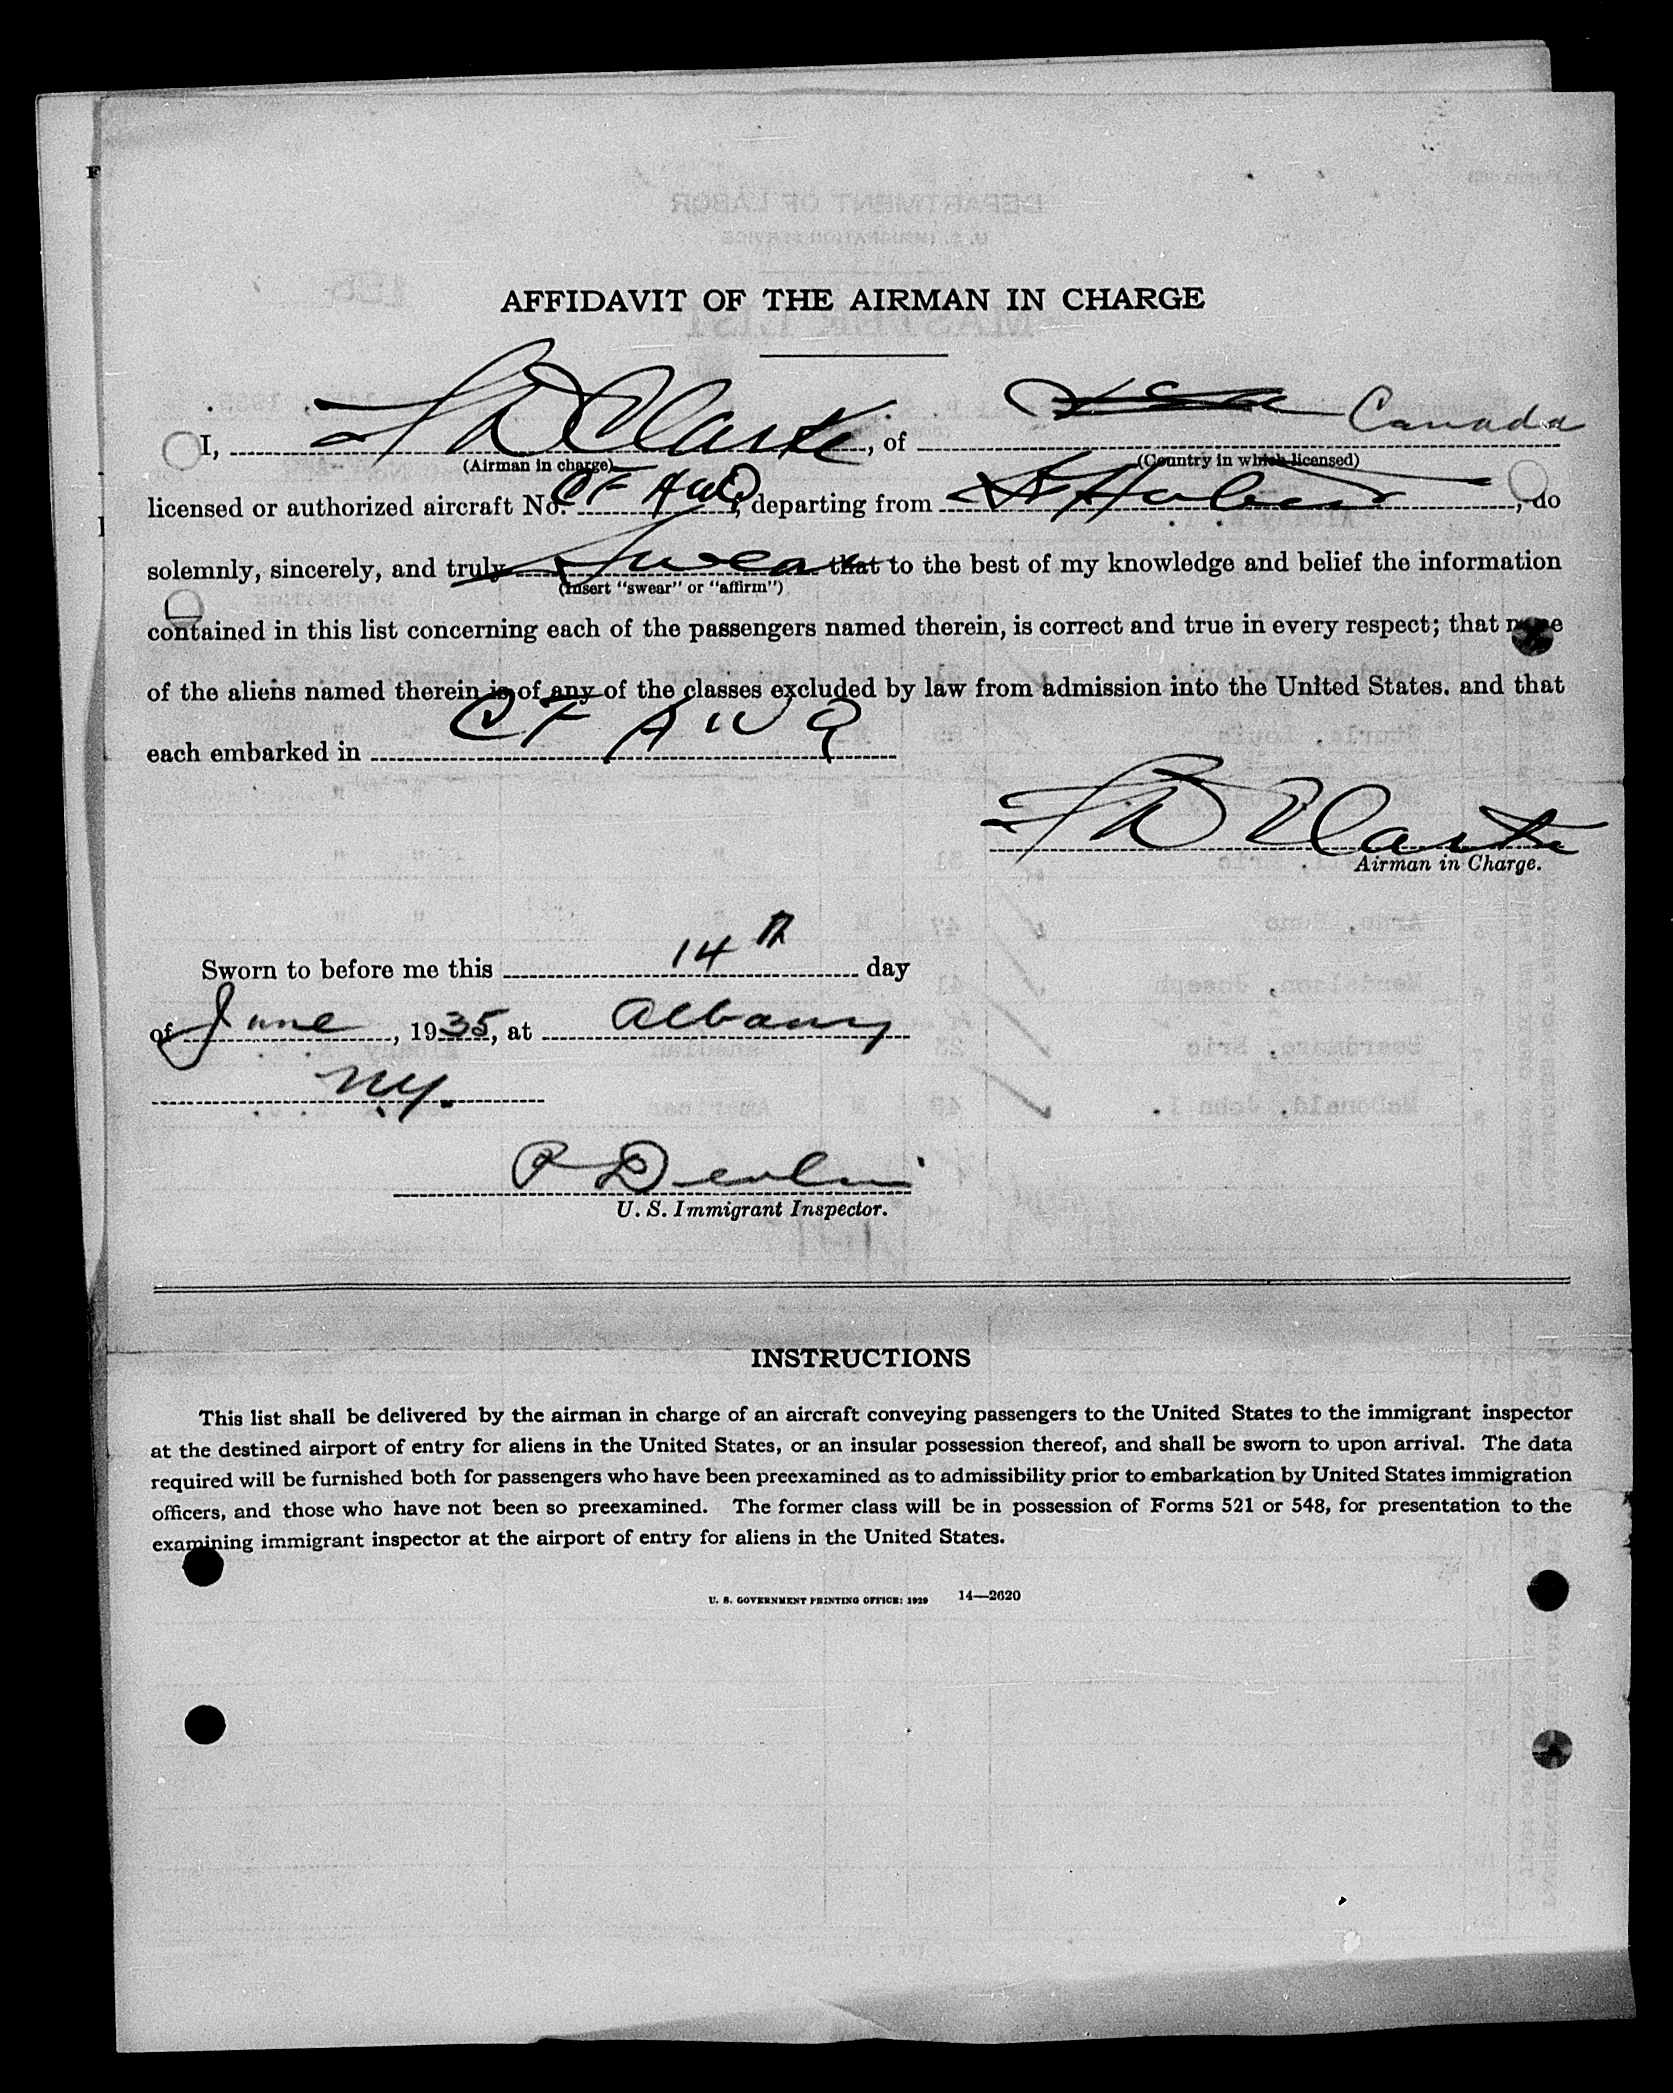 AFFIDAVIT OF THE AIRMAN IN CHARGE
I, Clarke, of Canada
(Airman in charge) (Country in which licensed)
licensed or authorized aircraft No. CF AWQ, departing from St Hubert, do
solemnly, sincerely, and truly Swear that to the best of my knowledge and belief the information
(Insert "swear" or "affirm")
contained in this list concerning each of the passengers named therein, is correct and true in every respect; that none
of the aliens named therein is of any of the classes excluded by law from admission into the United States. and that
each embarked in CF AWQ
Clarke
Airman in Charge.
Sworn to before me this 14th day
of June, 1935, at Albany
N.Y.
P Devlin
U. S. Immigrant Inspector.
INSTRUCTIONS
This list shall be delivered by the airman in charge of an aircraft conveying passengers to the United States to the immigrant inspector
at the destined airport of entry for aliens in the United States, or an insular possession thereof, and shall be sworn to upon arrival. The data
required will be furnished both for passengers who have been preexamined as to admissibility prior to embarkation by United States immigration
officers, and those who have not been so preexamined. The former class will be in possession of Forms 521 or 548, for presentation to the
examining immigrant inspector at the airport of entry for aliens in the United States.
U. S. GOVERNMENT PRINTING OFFICE: 1929 14—2620